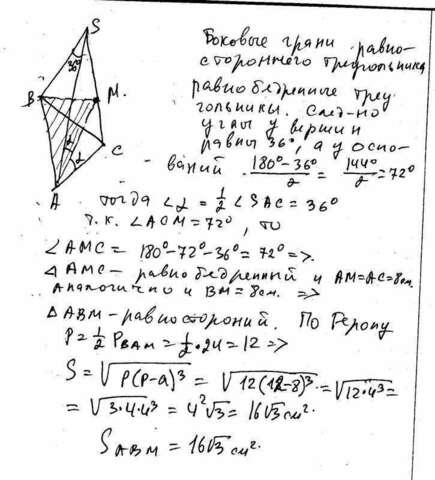 S
36°
B
M
C
α
α
A
Боковые грани равно-
стороннего треугольника
равнобедренные треу-
гольники. След-но
углы у вершин
равны 36°, а у осно-
ваний (180°-36°)/2 = 144°/2 = 72°
тогда ∠α = 1/2 ∠SAC = 36°
т.к. ∠ACM = 72°, то
∠AMC = 180°-72°-36° = 72° =>.
△AMC – равнобедренный и AM=AC=8см.
Аналогично и BM=8см. =>
△ABM – равностороний. По Герону
P = 1/2 P_BAM = 1/2 · 24 = 12 =>
S = √(P(P-a)³) = √(12(12-8)³) = √(12·4³) =
= √(3·4·4³) = 4²√3 = 16√3 см².
S_ABM = 16√3 см².